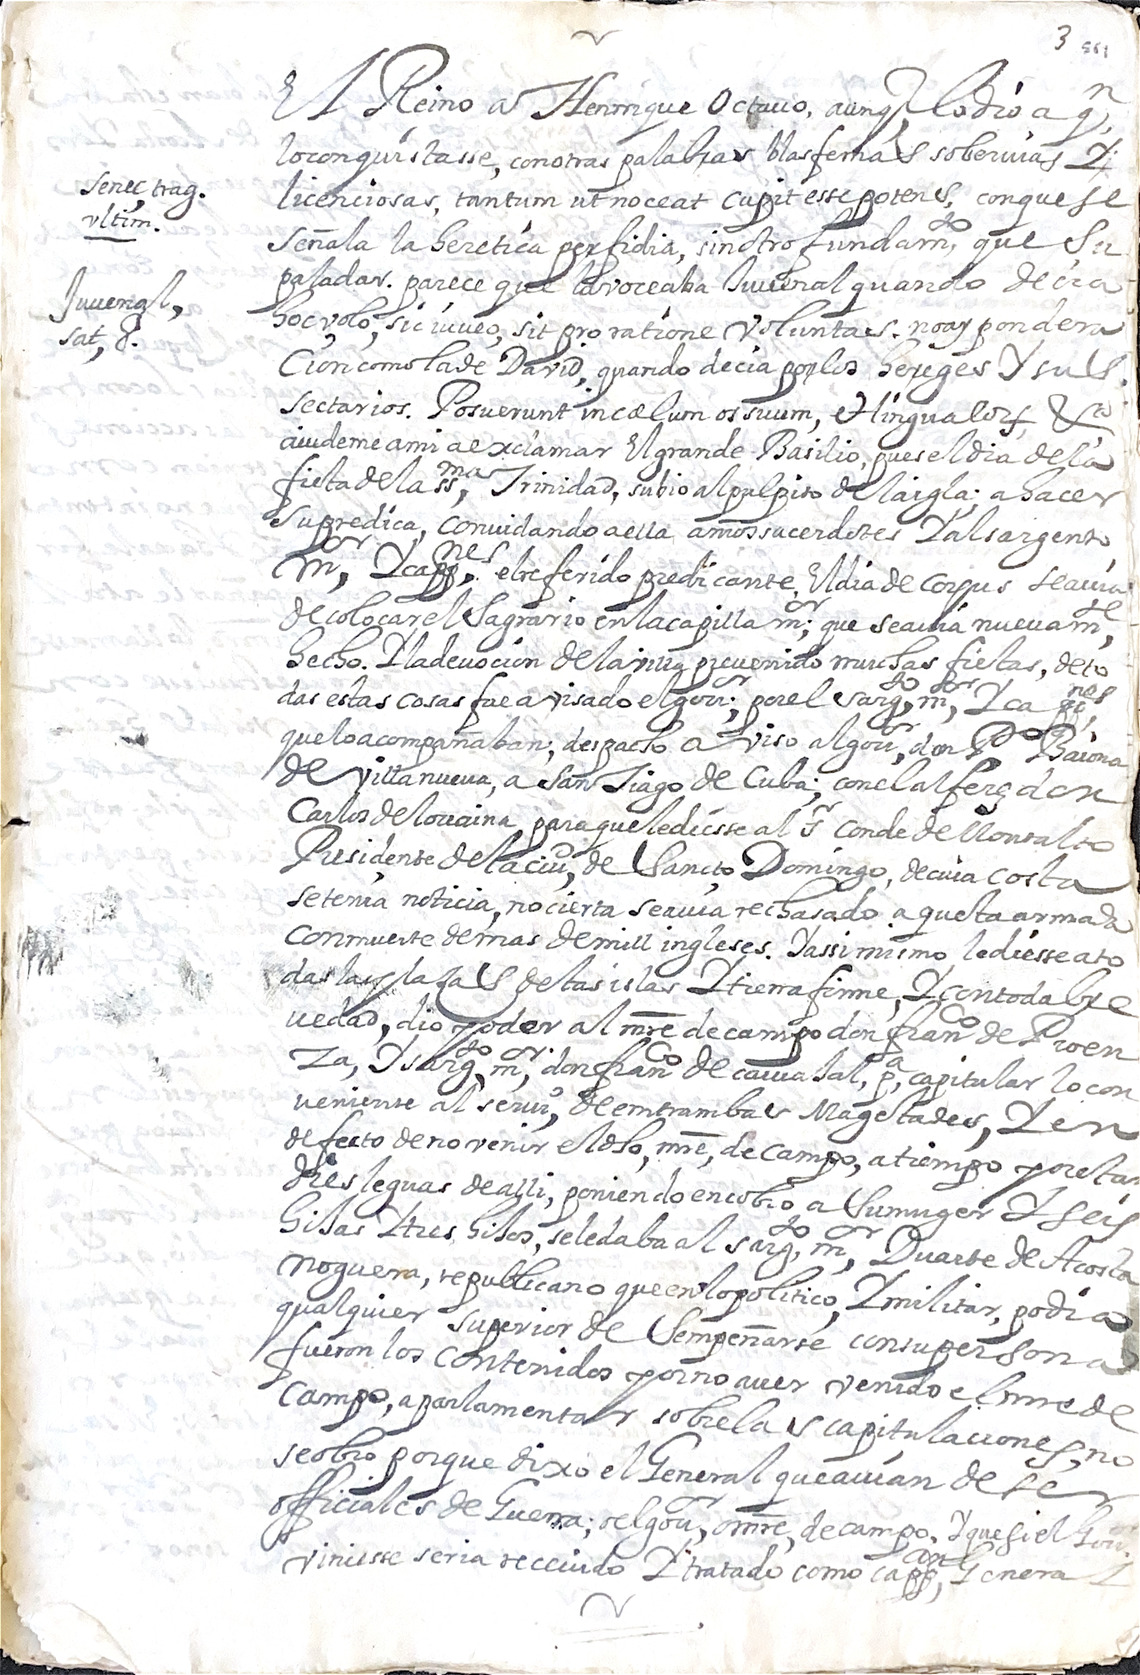 3 561
El Reino a Henrique Octauo, aunq̃ lo dio a q.n
loconquistasse, conotras palabras blasfemas soberuias Y
Senec, trag.
vltim.
licenciosas, tantum ut noceat cupit esse potens, conquese
señala la heretica perfidia, sinotro fundam.to que Su
Juuenal,
sat, 8.
paladar. parece que lavoceaba Juuenal quando decia
hoc volo, sic iuueo, sit pro ratione voluntas. noay pondera
Cion como la de David, quando decia por los hereges Y sus
sectarios. Posuerunt in cælum os suum, et lingua eor,, &c
aiudeme ami a exclamar El grande Basilio, pues el dia de la
fiesta de la ss,ma Trinidad, subio al pulpito de la igla; a hacer
Su predica, conuidando a ella amos sacerdotes Y al sargento
M,or Y capp,nes el referido predicante. El dia de Corpus seauia
de colocar el Sagrario en la capilla m,or que seauia nueuam,te
hecho. Y la deuocion de la villa preuenido muchas fiestas, de to
das estas cosas fue avisado el gou,or por el sarg,to m,or Y capp,nes
que lo acompañaban, despacho aviso al gou,or don P.o Baiona
de Villanueua, a San Tiago de Cuba; con el alferez don
Carlos de louaina para que le diesse al s,r conde de Montalto
Presidente de la ciu,d de Sancto Domingo, de cuia costa
se tenia noticia, no cierta seauia rechasado aquesta armada
con muerte de mas de mill ingleses. Y assimismo le diesse a to
das las plazas de las islas Y tierra firme, Y con toda bre
uedad, dio poder al mre de campo don fran.co de Proen
za, Y sarg,to m,or don fran.co de cauaJal, p,a capitular lo con
ueniente al serui,o de emtrambas Magestades, Y en
defecto de no venir el dho, mre, de campo, a tiempo por estar
dies leguas de alli, poniendo encobro a Sumuger Y seis
hiJas Y tres hiJos, se le daba al sarg,to m,or Duarte de Acosta
noguera, republicano que en lo politico, Y militar, podia
qualquier superior de Sempeñarse con su persona
fueron los contenidos y por no auer venido el mre de
Campo, a parlamentar sobre las capitulaciones, no
se obro porque dixo el General que auian de ser
officiales de Guerra; o el gou,or o mre, de campo. Y que si el Gou.or
viniesse seria receuido Y tratado como capp,an General